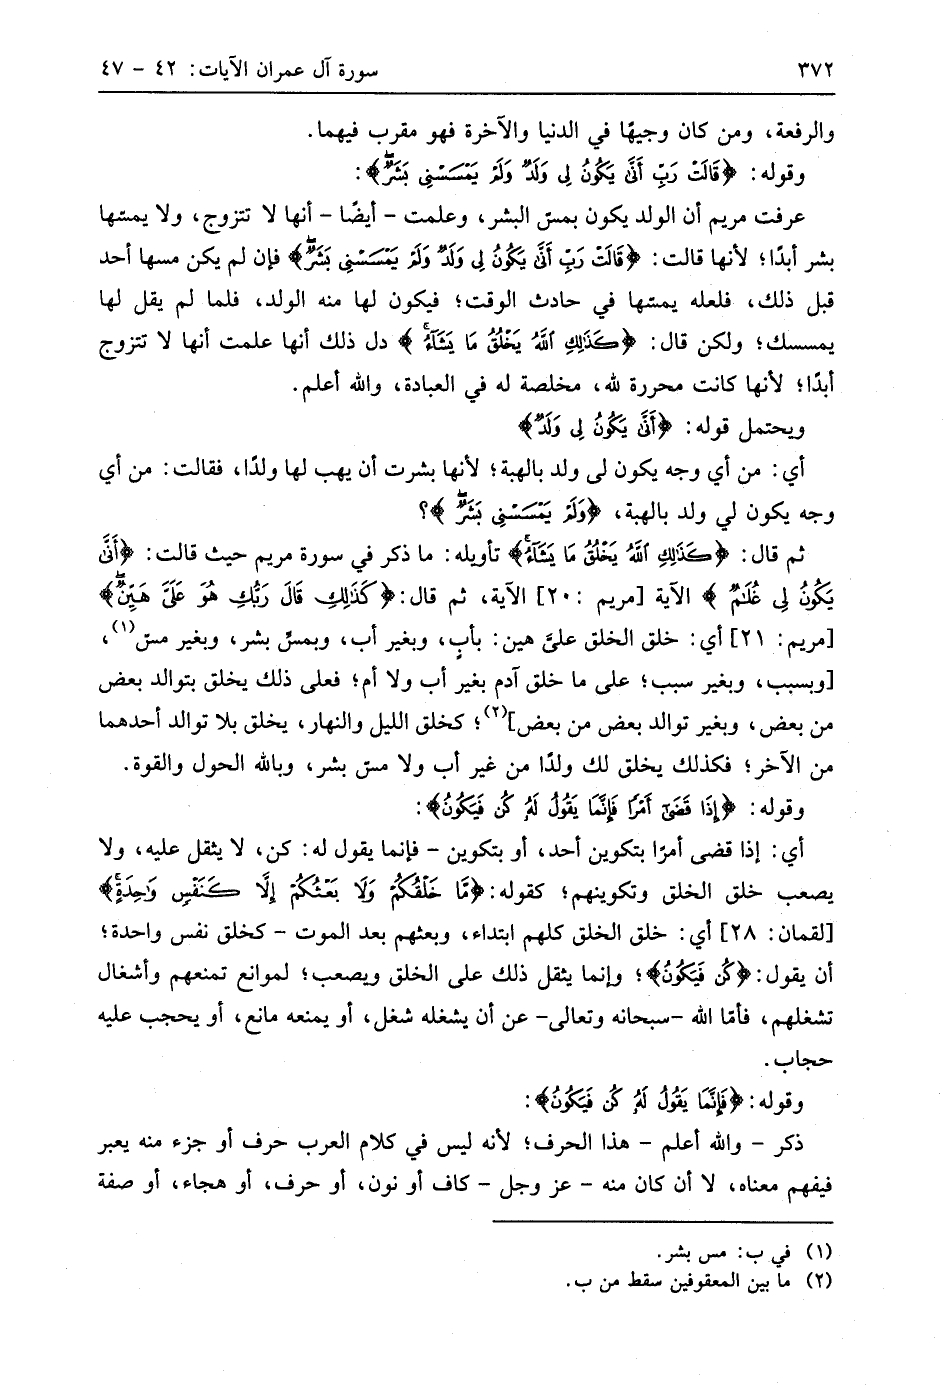 ٣٧٢
سورة آل عمران الآيات: ٤٢ - ٤٧
والرفعة، ومن كان وجيهًا في الدنيا والآخرة فهو مقرب فيهما.
وقوله: ﴿قَالَتْ رَبِّ أَنَّىٰ يَكُونُ لِي وَلَدٌ وَلَمْ يَمْسَسْنِي بَشَرٌۖ﴾:
عرفت مريم أن الولد يكون بمسّ البشر، وعلمت - أيضًا - أنها لا تتزوج، ولا يمسّها
بشر أبدًا؛ لأنها قالت: ﴿قَالَتْ رَبِّ أَنَّىٰ يَكُونُ لِي وَلَدٌ وَلَمْ يَمْسَسْنِي بَشَرٌۖ﴾ فإن لم يكن مسها أحد
قبل ذلك، فلعله يمسّها في حادث الوقت؛ فيكون لها منه الولد، فلما لم يقل لها
يمسسك؛ ولكن قال: ﴿كَذَٰلِكِ ٱللَّهُ يَخْلُقُ مَا يَشَآءُۚ﴾ دل ذلك أنها علمت أنها لا تتزوج
أبدًا؛ لأنها كانت محررة لله، مخلصة له في العبادة، والله أعلم.
ويحتمل قوله: ﴿أَنَّىٰ يَكُونُ لِي وَلَدٌ﴾
أي: من أي وجه يكون لى ولد بالهبة؛ لأنها بشرت أن يهب لها ولدًا، فقالت: من أي
وجه يكون لي ولد بالهبة، ﴿وَلَمْ يَمْسَسْنِي بَشَرٌۖ﴾؟
ثم قال: ﴿كَذَٰلِكِ ٱللَّهُ يَخْلُقُ مَا يَشَآءُۚ﴾ تأويله: ما ذكر في سورة مريم حيث قالت: ﴿أَنَّىٰ
يَكُونُ لِي غُلَٰمٌ﴾ الآية [مريم :٢٠] الآية، ثم قال:﴿كَذَٰلِكِ قَالَ رَبُّكِ هُوَ عَلَيَّ هَيِّنٌۖ﴾
[مريم: ٢١] أي: خلق الخلق عليَّ هين: بأبٍ، وبغير أب، وبمسِّ بشر، وبغير مسّ(١)،
[وبسبب، وبغير سبب؛ على ما خلق آدم بغير أب ولا أم؛ فعلى ذلك يخلق بتوالد بعض
من بعض، وبغير توالد بعض من بعض](٢)؛ كخلق الليل والنهار، يخلق بلا توالد أحدهما
من الآخر؛ فكذلك يخلق لك ولدًا من غير أب ولا مسّ بشر، وبالله الحول والقوة.
وقوله: ﴿إِذَا قَضَىٰٓ أَمْرًا فَإِنَّمَا يَقُولُ لَهُۥ كُن فَيَكُونُ﴾:
أي: إذا قضى أمرًا بتكوين أحد، أو بتكوين - فإنما يقول له: كن، لا يثقل عليه، ولا
يصعب خلق الخلق وتكوينهم؛ كقوله:﴿مَّا خَلْقُكُمْ وَلَا بَعْثُكُمْ إِلَّا كَنَفْسٍ وَٰحِدَةٍۚ﴾
[لقمان: ٢٨] أي: خلق الخلق كلهم ابتداء، وبعثهم بعد الموت - كخلق نفس واحدة؛
أن يقول:﴿كُن فَيَكُونُ﴾؛ وإنما يثقل ذلك على الخلق ويصعب؛ لموانع تمنعهم وأشغال
تشغلهم، فأمّا الله -سبحانه وتعالى- عن أن يشغله شغل، أو يمنعه مانع، أو يحجب عليه
حجاب.
وقوله:﴿فَإِنَّمَا يَقُولُ لَهُۥ كُن فَيَكُونُ﴾:
ذكر - والله أعلم - هذا الحرف؛ لأنه ليس في كلام العرب حرف أو جزء منه يعبر
فيفهم معناه، لا أن كان منه - عز وجل - كاف أو نون، أو حرف، أو هجاء، أو صفة
(١) في ب: مس بشر.
(٢) ما بين المعقوفين سقط من ب.